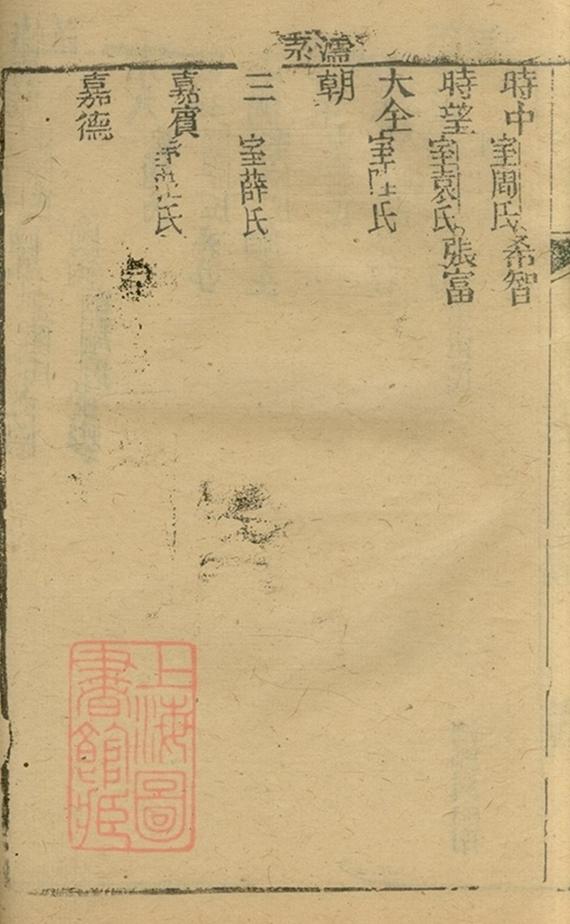 濡
時中室周氏希智
時望室袁氏張富
大全室氏
朝
三室薛氏
嘉賓氏
嘉德
上海圖書館